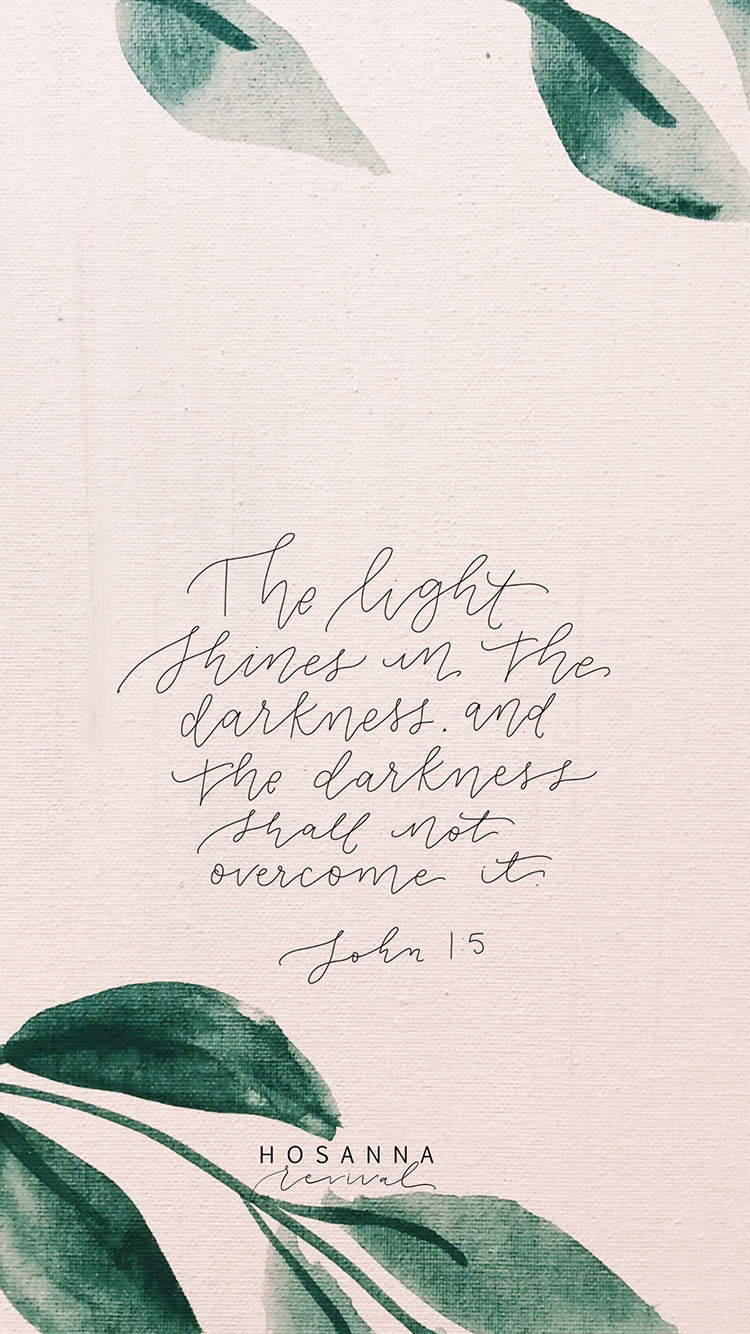 The light
shines in the
darkness. and
the darkness
shall not
overcome it.
John 1:5
HOSANNA
revival